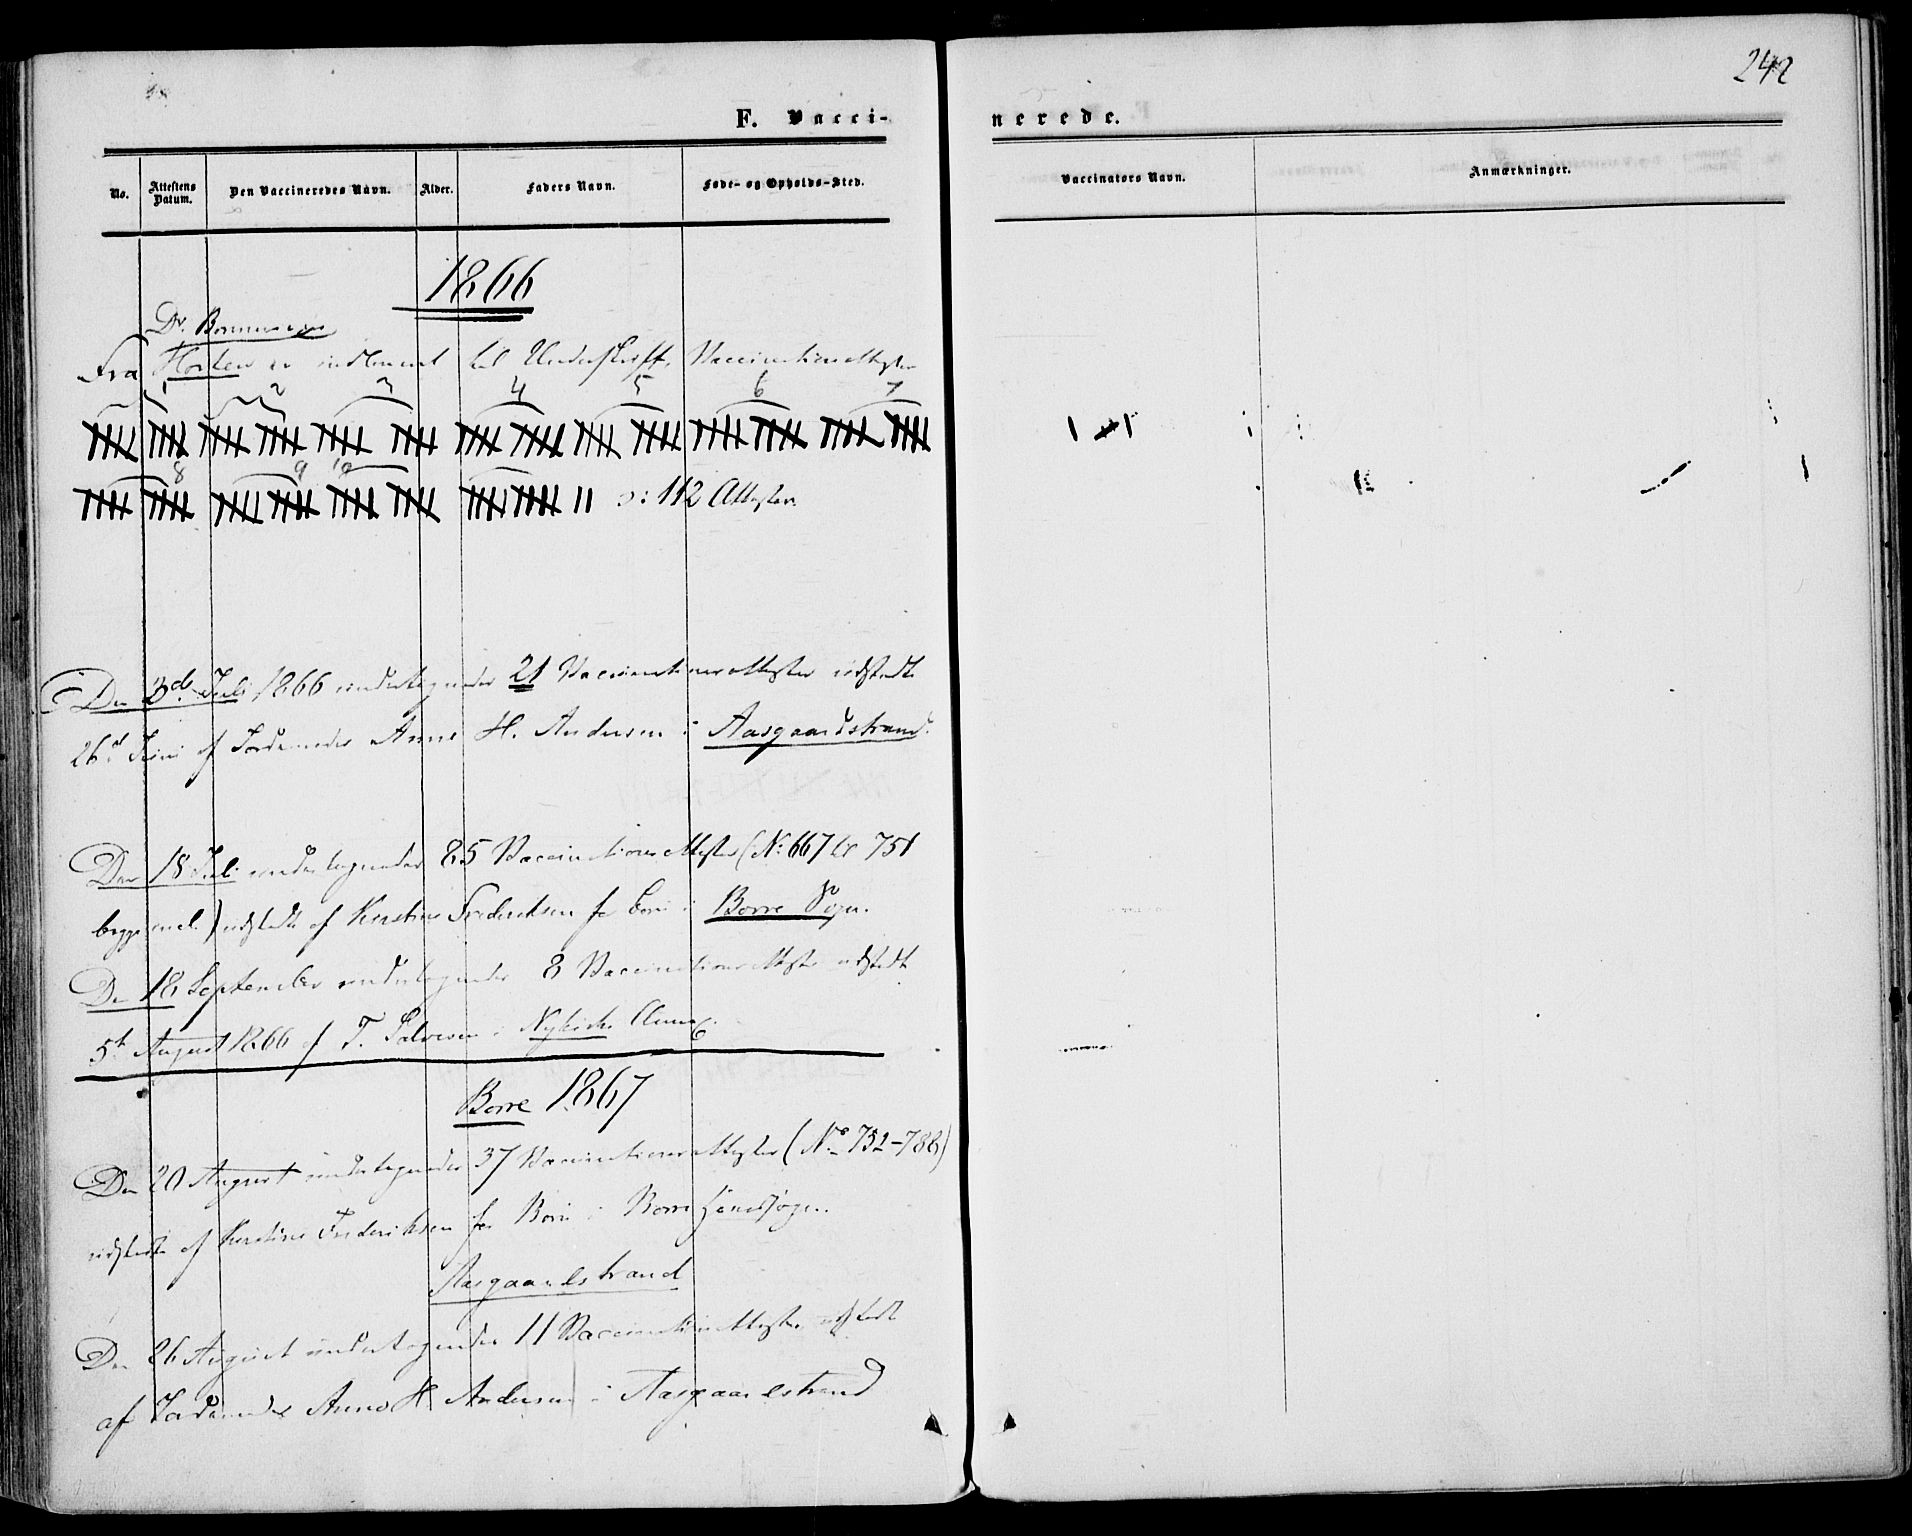 242
F. Vacci-nerede.
No. Attestens Datum. Den Vaccineredes Navn. Alder. Faders Navn. Føde- og Opholds-Sted. Vaccinators Navn. Anmærkninger.
1866
Dr.
Fra Horten er indkommet til Underskrift, Vaccinationsattester
1 2 3 4 5 6 7
8 9 10
ɔ: 112 Attester.
Den 3d Juli 1866 undertegnedes 21 Vaccinationsattester udstedte
26d Juni af Jordemoder Anne H. Andersen i Aasgaardstrand.
Den 18 Juli undertegnedes 85 Vaccinationsattester (No 667 til 751
begge incl.) udstedte af Kirstine Frederiksen for Børn i Borre Sogn.
Den 18 September undertegnedes 8 Vaccinationsattester udstedt
5t August 1866 af T. Salvesen i Nykirke
Borre 1867
Den 20 August undertegnedes 37 Vaccinationsattester (No 752-788)
udstedte af Kirstine Frederiksen for Børn i Borre
Aasgaardstrand
Den 26 August undertegnedes 11 Vaccinationsattester udstedt
af Jordemoder Anne H. Andersen i Aasgaardstrand